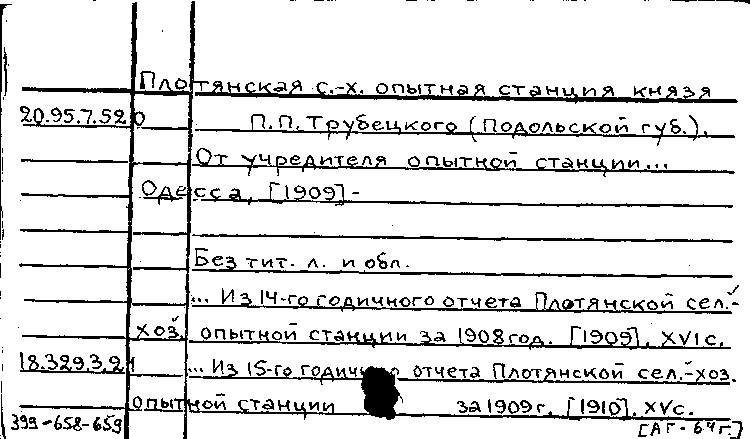 Плотянская с.-х. опытная станция князя
20.95.7.520 П.П. Трубецкого (Подольской губ.).
От учредителя опытной станции...
Одесса, [1909]-
Без тит. л. и обл.
... Из 14-го годичного отчета Плотянской сел.-
хоз. опытной станции за 1908 год. [1909]. XVI с.
18.329.3.21 ... Из 15-го годичного отчета Плотянской сел.-хоз.
опытной станции за 1909 г. [1910]. XV с.
399-658-659 [АГ-64г.]